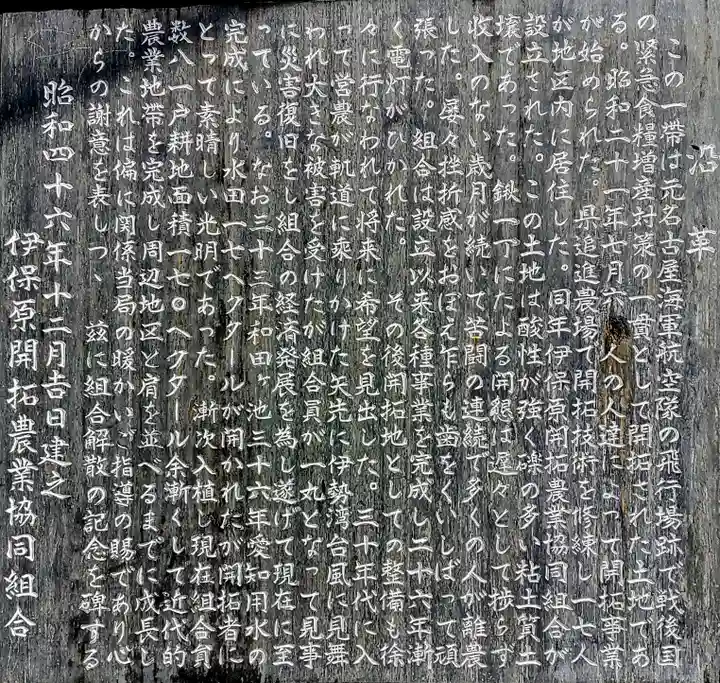 沿革
この一帯は元名古屋海軍航空隊の飛行場跡で戦後国
の緊急食糧増産対策の一貫として開拓された土地であ
る。昭和二十一年七月六 人の人達によって開拓事業
が始められた。県追進農場で開拓技術を修練し一七人
が地区内に居住した。同年伊保原開拓農業協同組合が
設立された。この土地は酸性が強く礫の多い粘土質土
壌であった。鍬一丁にたよる開懇は遅々として捗らず
収入のない歳月が続いて苦闘の連続で多くの人が離農
した。屡々挫折感をおぼえ乍らも歯をくいしばって頑
張った。組合は設立以来各種事業を完成し二十六年漸
く電灯がひかれた。 その後開拓地としての整備も徐
々に行なわれて将来に希望を見出した。三十年代に入
って営農が軌道に乗りかけた矢先に伊勢湾台風に見舞
われ大きな被害を受けたが組合員が一丸となって見事
に災害復旧をし組合の経済発展を為し遂げて現在に至
っている。なお三十三年和田ヶ池三十六年愛知用水の
完成により水田一七ヘクタールが開かれたが開拓者に
とって素晴しい光明であった。漸次入植し現在組合員
数八一戸耕地面積一七〇ヘクタール余漸くして近代的
農業地帯を完成し周辺地区と肩を並べるまでに成長し
た。これは偏に関係当局の暖かいご指導の賜であり心
からの謝意を表しつゝ 茲に組合解散の記念を碑する
昭和四十六年十二月吉日建之
伊保原開拓農業協同組合